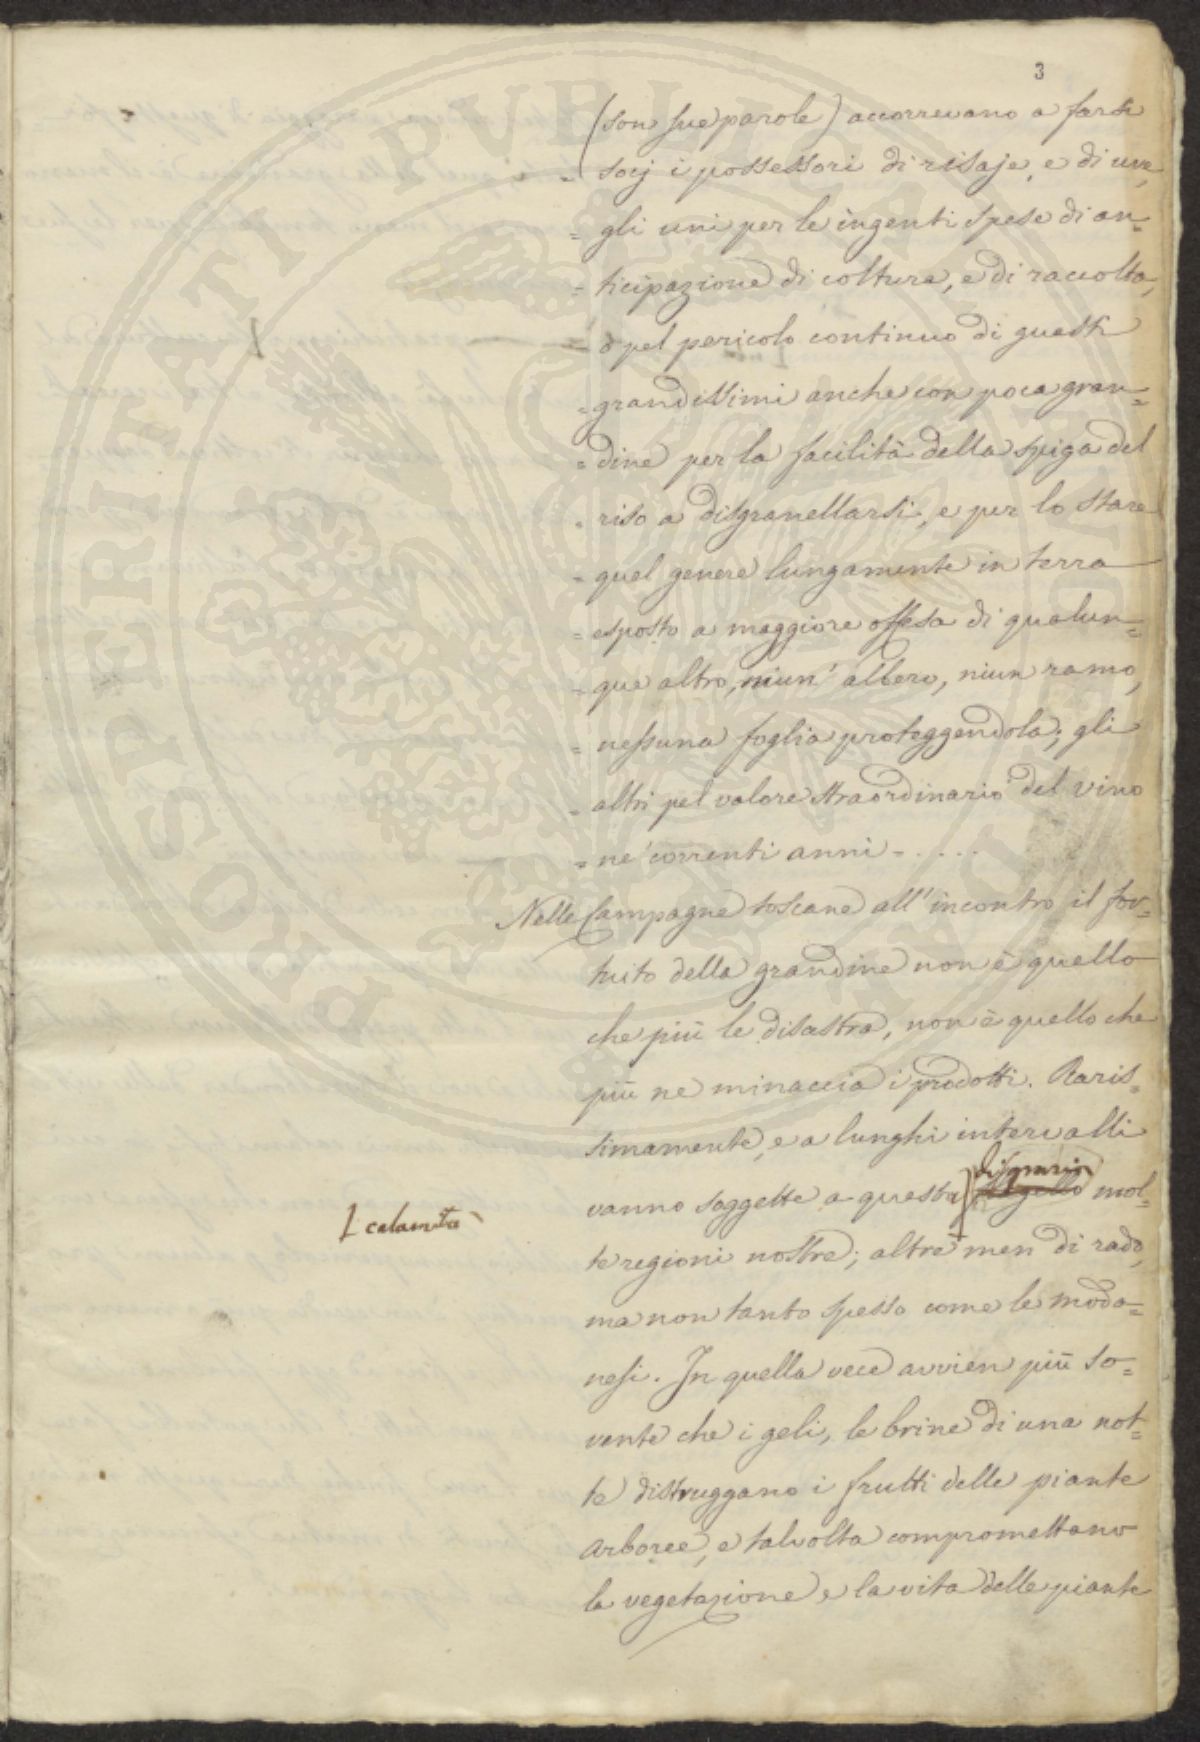 3
(son sue parole) accorrevano a farsi
= socij i possessori di risaje, e di uve,
= gli uni per le ingenti spese di an=
= ticipazione di colture, e di raccolta,
= e pel pericolo continuo di guasti
= grandissimi anche con poca gran=
= dine per la facilità della spiga del
= riso a disgranellarsi, e per lo stare
= quel genere lungamente in terra
= esposto a maggiore offesa di qualun=
= que altro, niun' albero, niun ramo,
= nessuna foglia proteggendola; gli
= altri pel valore straordinario del vino
= ne' correnti anni = . . . .
Nelle Campagne toscane all' incontro il for=
tuito della grandine non è quello
che più le disastra, non è quello che
più ne minaccia i prodotti. Raris=
simamente, e a lunghi intervalli
disgrazia
vanno soggette a questa flagello mol=
calamità
te regioni nostre; altre men di rado,
ma non tanto spesso come le moda=
nesi. In quella vece avvien più so=
vente che i geli, le brine di una not=
te distruggano i frutti delle piante
arboree, e talvolta compromettano
la vegetazione e la vita delle piante
PROSPERITATI PVBLICAE